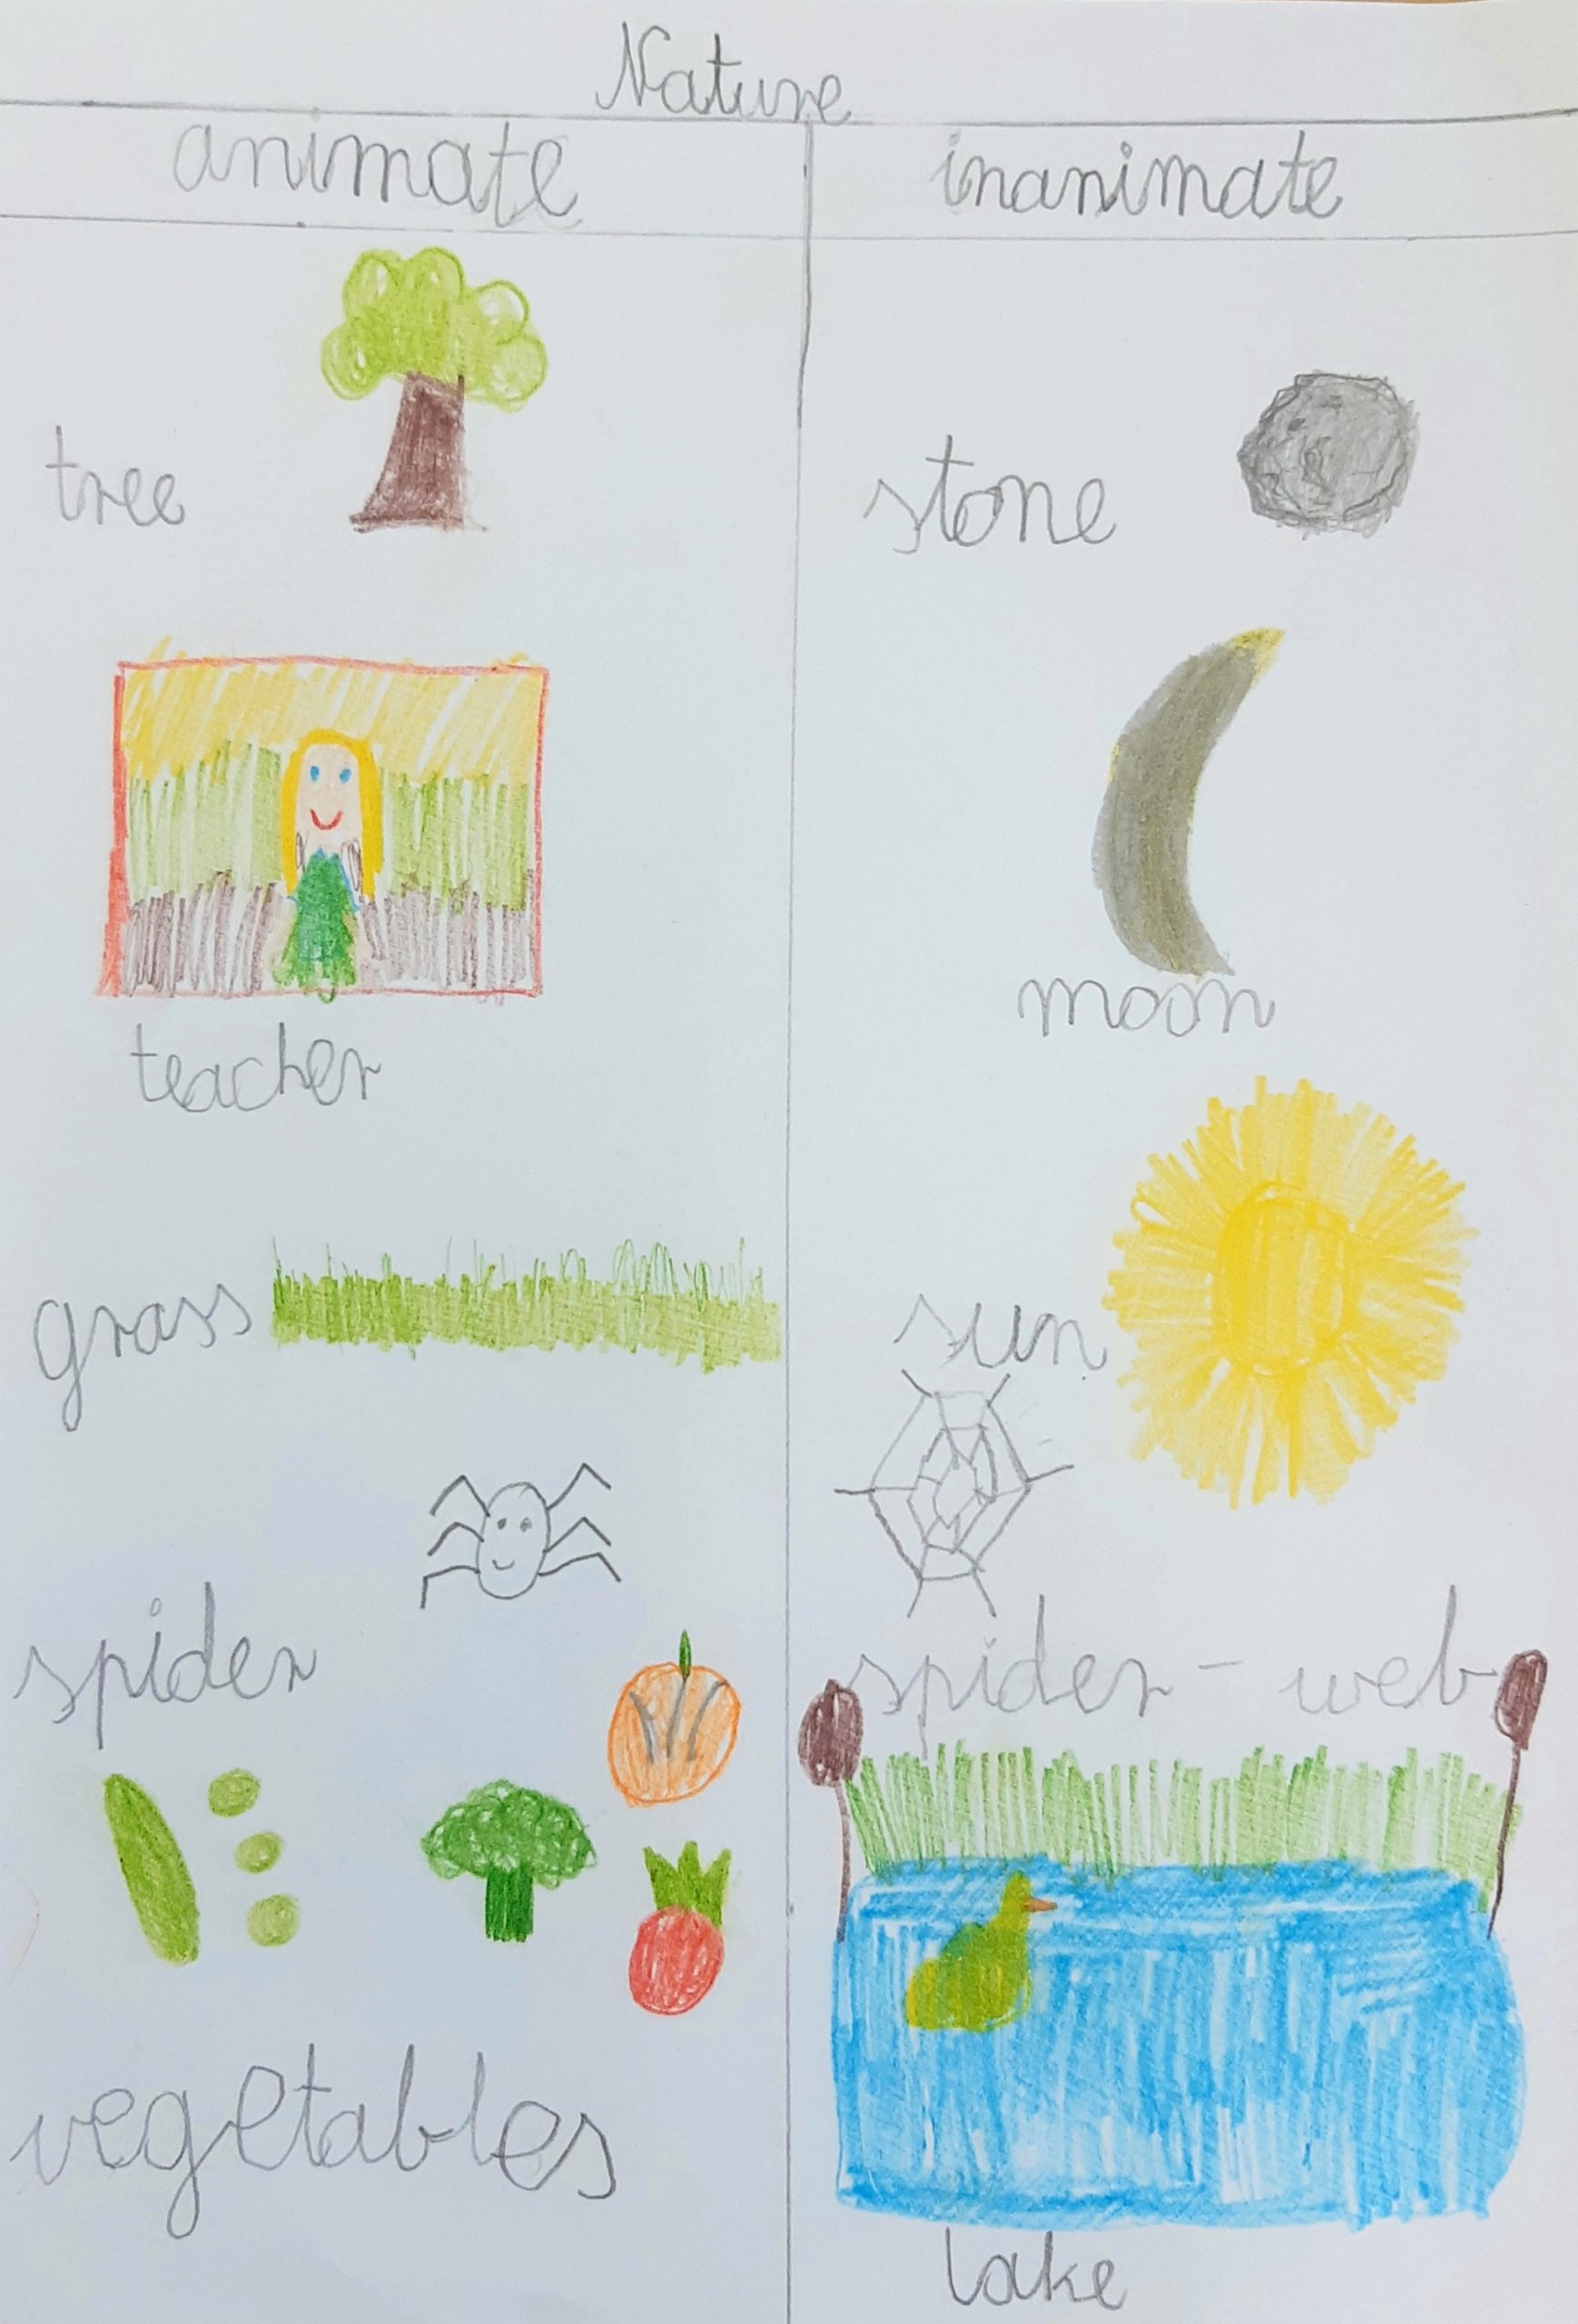 Nature
animate
inanimate
tree
teacher
grass
spider
vegetables
stone
moon
sun
spider-web
lake